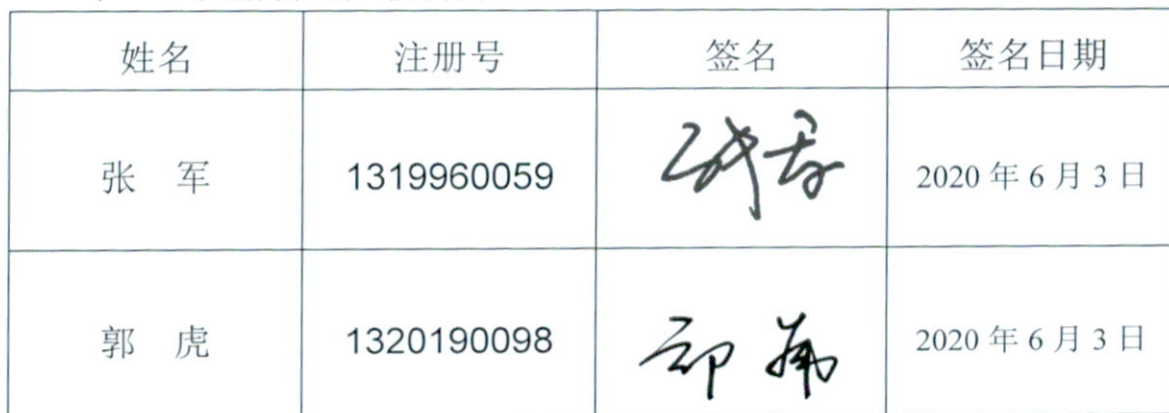 姓名 注册号 签名 签名日期
张 军 1319960059 张军 2020 年 6 月 3 日
郭 虎 1320190098 郭虎 2020 年 6 月 3 日